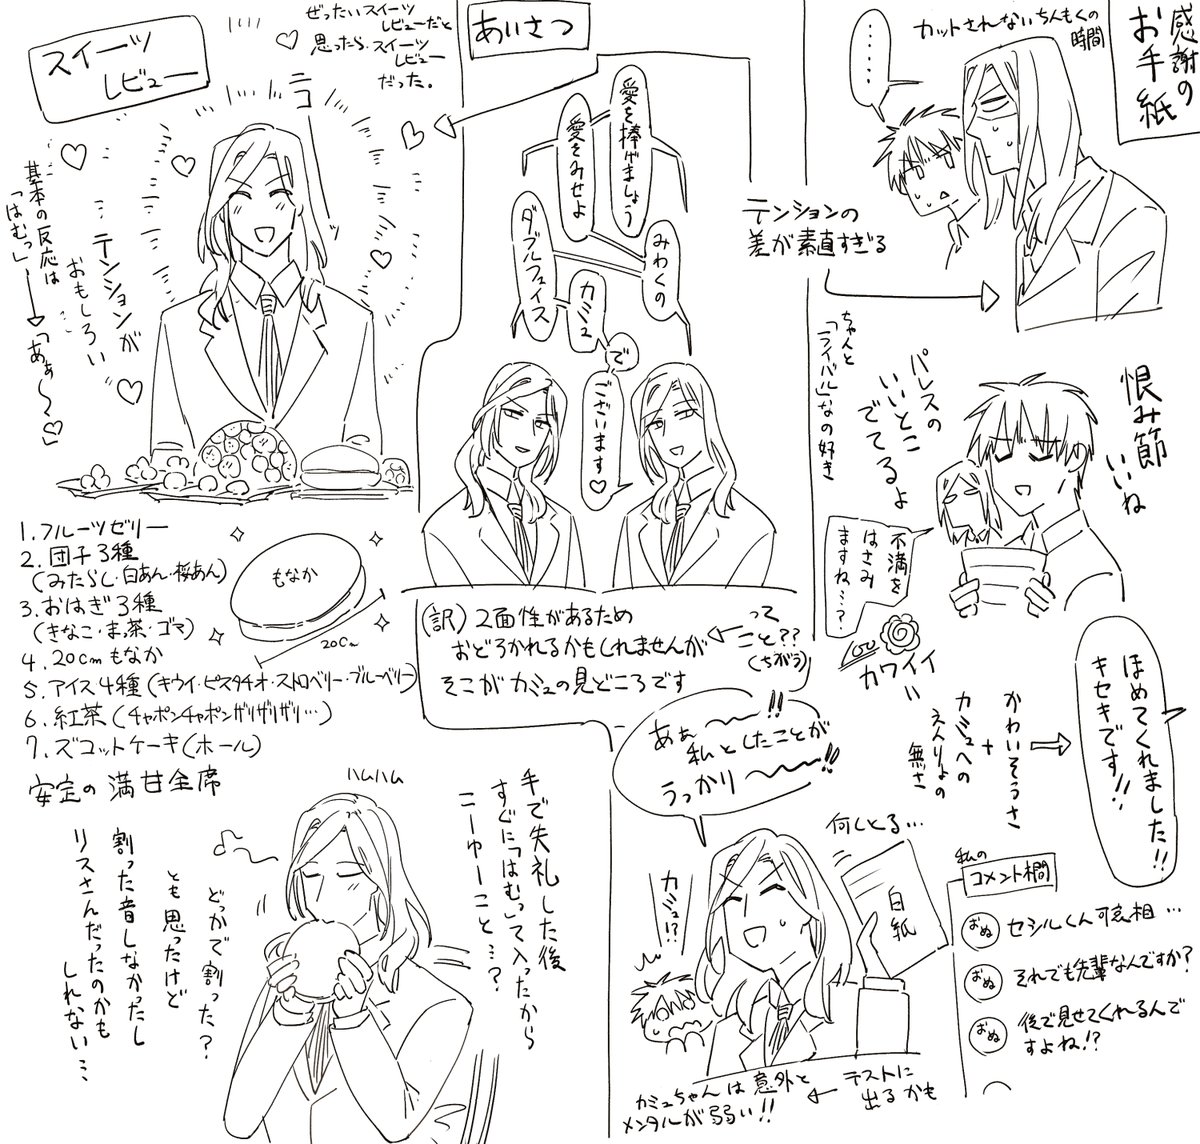 スイーツ
レビュー
ぜったいスイーツ
レビューだと
思ったら、スイーツ
レビュー
だった。
ニコ
テンションが
おもしろい
…
基本の反応は
「はむっ」→「あぁ～♡」
1.フルーツゼリー
2.団子3種
(みたらし・白あん・桜あん)
3.おはぎ3種
(きなこ・まっ茶・ゴマ)
4.20cmもなか
5.アイス4種(キウイ・ピスタチオ・ストロベリー・ブルーベリー)
6.紅茶(チャポンチャポンザリザリザリ…)
7.ズコットケーキ(ホール)
安定の満甘全席
もなか
20cm
あいさつ
愛を捧げましょう
愛をみせよ
みわくの
ダブルフェイス
カミュ
で
ございます♡
(訳)2面性があるため
おどろかれるかもしれませんが
そこがカミュの見どころです
って
こと??
(ちがう)
テンションの
差が素直すぎる
感謝の
お手紙
カットされないちんもくの
時間
……
恨み節
いいね
パレスの
いいとこ
でてるよ
ちゃんと
「ライバル」なの好き
不満を
はさみ
ますね…?
100
カワイイ
=
かわいそうさ
+
カミュへの
えんりょの
無さ
ほめてくれました!!
キセキです!!
あぁ～～!!
私としたことが
うっかり～～!!
何しとる…
白紙
カミュ!?
カミュちゃんは意外と
メンタルが弱い!!
テストに
出るかも
私の
コメント欄
おぬ セシルくん可哀相…
おぬ それでも先輩なんですか?
おぬ 後で見せてくれるんで
すよね!?
ハムハム
手で失礼した後
すぐに「はむっ」て入ったから
こーゆーこと…?
どっかで割った?
とも思ったけど
割った音しなかったし
リスさんだったのかも
しれない…